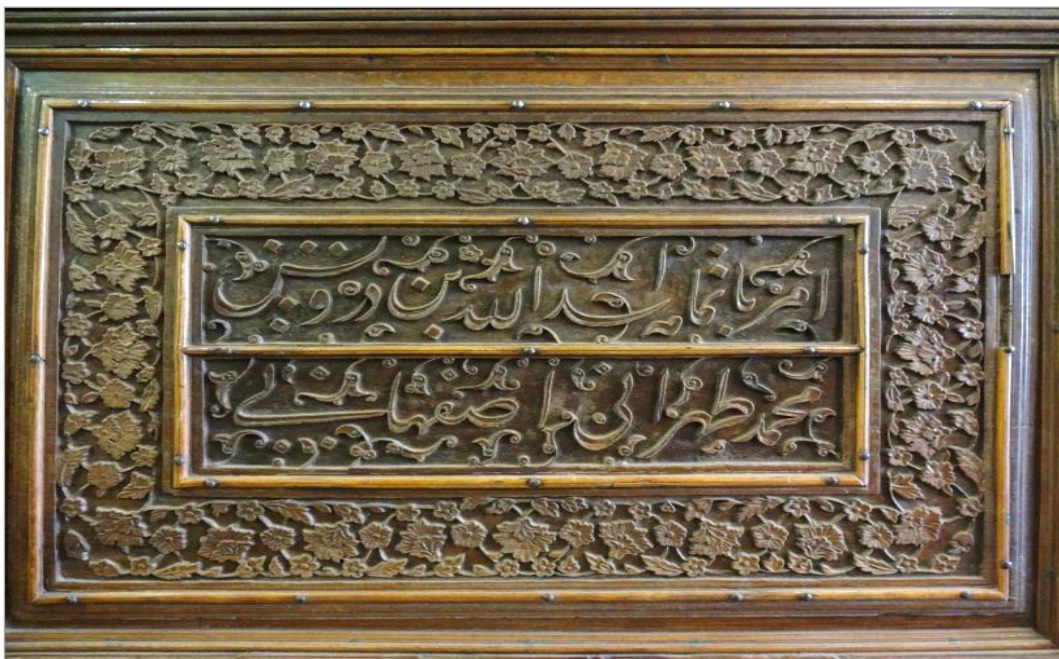 امر اسد الله بن درویش
محمد طهرانی اصفهانی